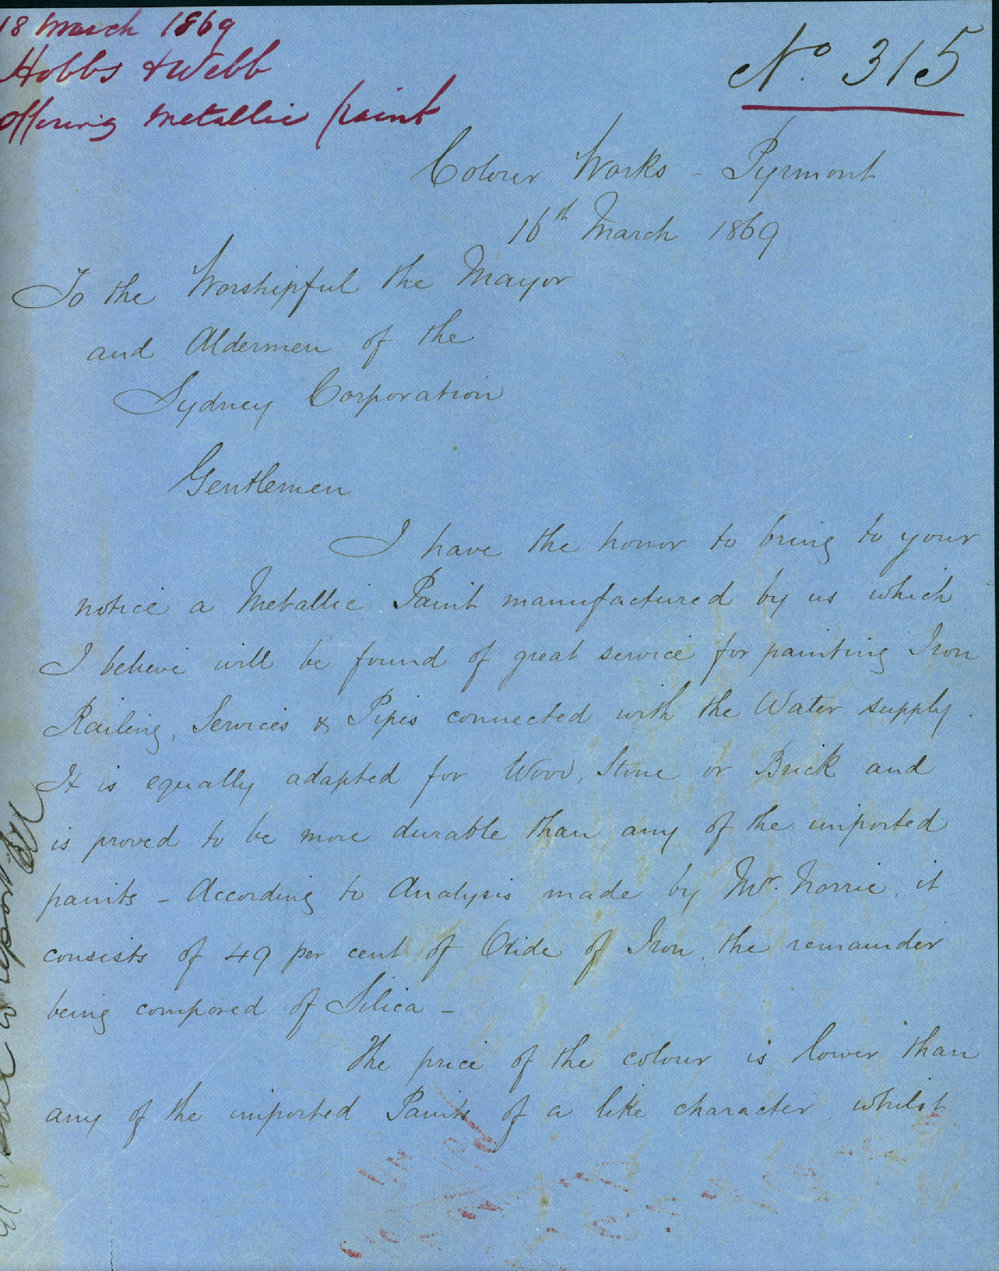 18 March 1869
Hobbs & Webb
offering metallic paint
No. 315
Colour Works - Pyrmont
16th March 1869
To the Worshipful the Mayor
and Aldermen of the
Sydney Corporation
Gentlemen
I have the honor to bring to your
notice a Metallic Paint manufactured by us which
I believe will be found of great service for painting Iron
Railing, Services & Pipes connected with the Water supply.
It is equally adapted for Wood, Stone or Brick and
is proved to be more durable than any of the imported
paints - According to Analysis made by Mr. Norrie, it
consists of 49 per cent of Oxide of Iron, the remainder
being composed of Silica -
The price of the colour is lower than
any of the imported Paints of a like character, whilst